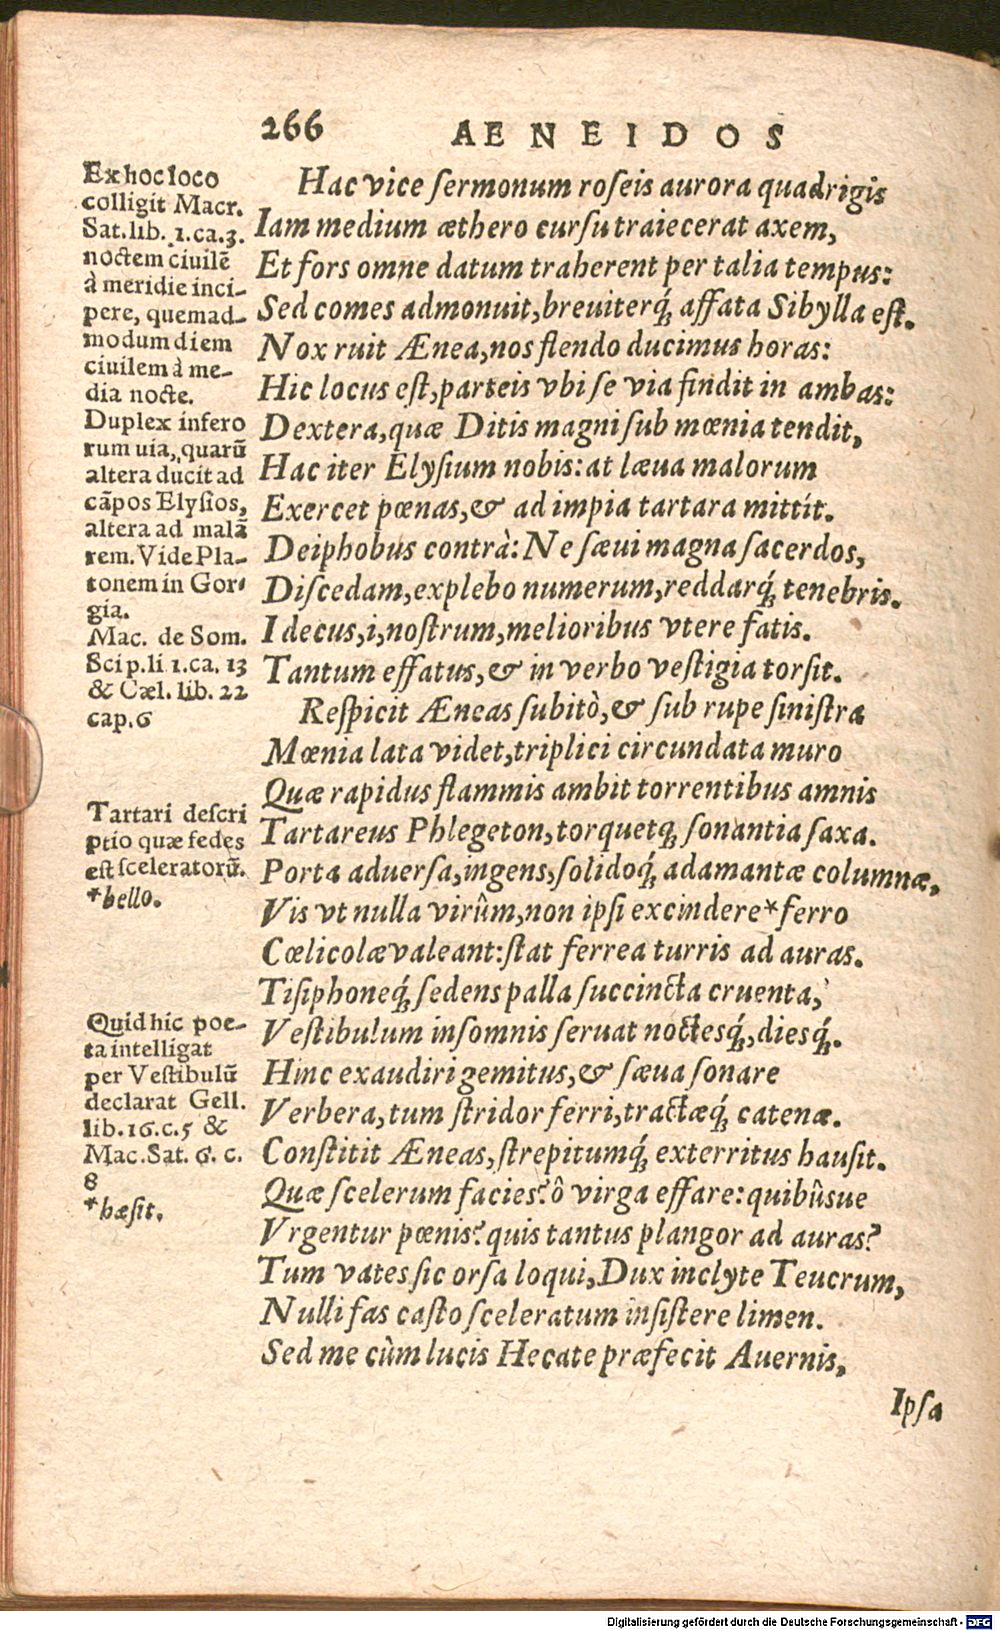 266 AENEIDOS
Ex hoc loco
colligit Macr.
Sat. lib. 1. ca. 3.
noctem ciuilẽ
à meridie inci-
pere, quemad-
modum diem
ciuilem à me-
dia nocte.
Duplex infero
rum uia, quarũ
altera ducit ad
cãpos Elysios,
altera ad malã
rem. Vide Pla-
tonem in Gor-
gia.
Mac. de Som.
Scip. li 1. ca. 13
& Cæl. lib. 22
cap. 6
Tartari descri
ptio quæ sedes
est sceleratorũ.
*bello.
Quid hic poe-
ta intelligat
per Vestibulũ
declarat Gell.
lib. 16. c. 5 &
Mac. Sat. 6. c.
8
*hæsit.
Hac vice sermonum roseis aurora quadrigis
Iam medium æthero cursu traiecerat axem,
Et fors omne datum traherent per talia tempus:
Sed comes admonuit, breuiterq́; affata Sibylla est.
Nox ruit Ænea, nos flendo ducimus horas:
Hic locus est, parteis vbi se via findit in ambas:
Dextera, quæ Ditis magni sub mœnia tendit,
Hac iter Elysium nobis: at læua malorum
Exercet pœnas, & ad impia tartara mittit.
Deiphobus contrà: Ne sæui magna sacerdos,
Discedam, explebo numerum, reddarq́; tenebris.
I decus, i, nostrum, melioribus vtere fatis.
Tantum effatus, & in verbo vestigia torsit.
Respicit Æneas subitò, & sub rupe sinistra
Mœnia lata videt, triplici circundata muro
Quæ rapidus flammis ambit torrentibus amnis
Tartareus Phlegeton, torquetq; sonantia saxa.
Porta aduersa, ingens, solidoq́; adamantæ columnæ,
Vis vt nulla virûm, non ipsi excindere* ferro
Cœlicolæ valeant: stat ferrea turris ad auras.
Tisiphoneq́; sedens palla succincta cruenta,
Vestibulum insomnis seruat noctesq́;, diesq́;.
Hinc exaudiri gemitus, & sæua sonare
Verbera, tum stridor ferri, tractæq́; catenæ.
Constitit Æneas, strepitumq́; exterritus hausit.
Quæ scelerum facies? ô virga effare: quibûsue
Vrgentur pœnis? quis tantus plangor ad auras?
Tum vates sic orsa loqui, Dux inclyte Teucrum,
Nulli fas casto sceleratum insistere limen.
Sed me cùm lucis Hecate præfecit Auernis,
Ipsa
Digitalisierung gefördert durch die Deutsche Forschungsgemeinschaft - DFG